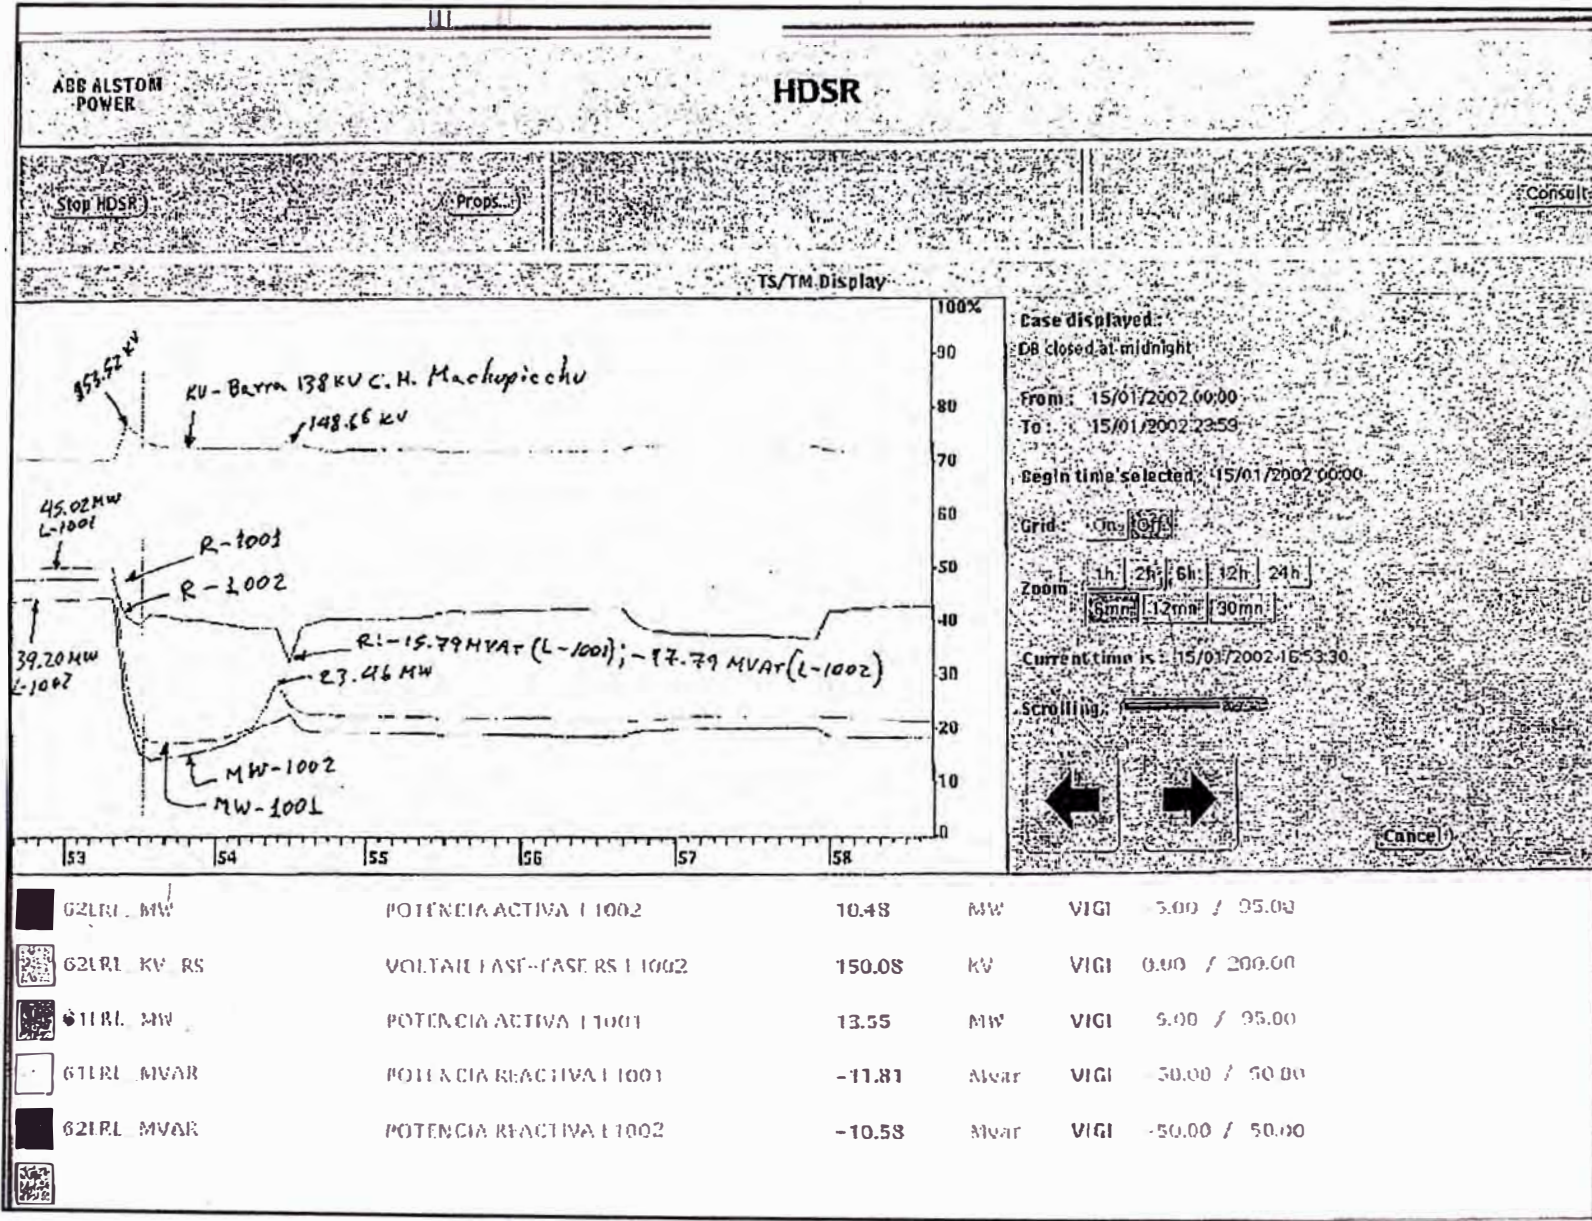 ABB ALSTOM
POWER
HDSR
Stop HDSR
Props...
Consult
TS/TM Display
100%
90
80
70
60
50
40
30
20
10
0
KV-Barra 138 KV C.H. Machupicchu
148.66 KV
45.02 MW
L-1001
R-1001
R-1002
39.20 MW
L-1002
R:-15.79 MVAr (L-1001); -17.79 MVAr (L-1002)
23.46 MW
MW-1002
MW-1001
53 54 55 56 57 58
Case displayed:
DB closed at midnight
From : 15/01/2002 00:00
To : 15/01/2002 23:59
Begin time selected : 15/01/2002 00:00
Grid : On Off
Zoom
1h 2h 6h 12h 24h
6mn 12mn 30mn
Current time is : 15/01/2002 16:53:30
Scrolling
Cancel
62LRL MW POTENCIA ACTIVA L1002 10.48 MW VIGI -5.00 / 95.00
62LRL KV RS VOLTAJE FASE-FASE RS L1002 150.08 KV VIGI 0.00 / 200.00
61LRL MW POTENCIA ACTIVA L1001 13.55 MW VIGI 5.00 / 95.00
61LRL MVAR POTENCIA REACTIVA L1001 -11.81 Mvar VIGI -50.00 / 50.00
62LRL MVAR POTENCIA REACTIVA L1002 -10.58 Mvar VIGI -50.00 / 50.00